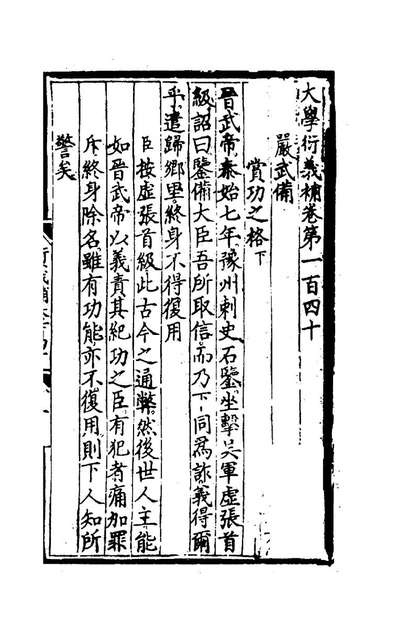 大學衍義補卷第一百四十
嚴武備
賞功之格下
晉武帝泰始七年豫州刺史石鑒坐擊吳軍虛張首
級詔曰鑒備大臣吾所取信而乃下同爲詐義得爾
乎遣歸鄉里終身不得復用
臣按虛張首級此古今之通弊然後世人主能
如晉武帝以義責其紀功之臣有犯者痛加罪
斥終身除名雖有功能亦不復用則下人知所
警矣